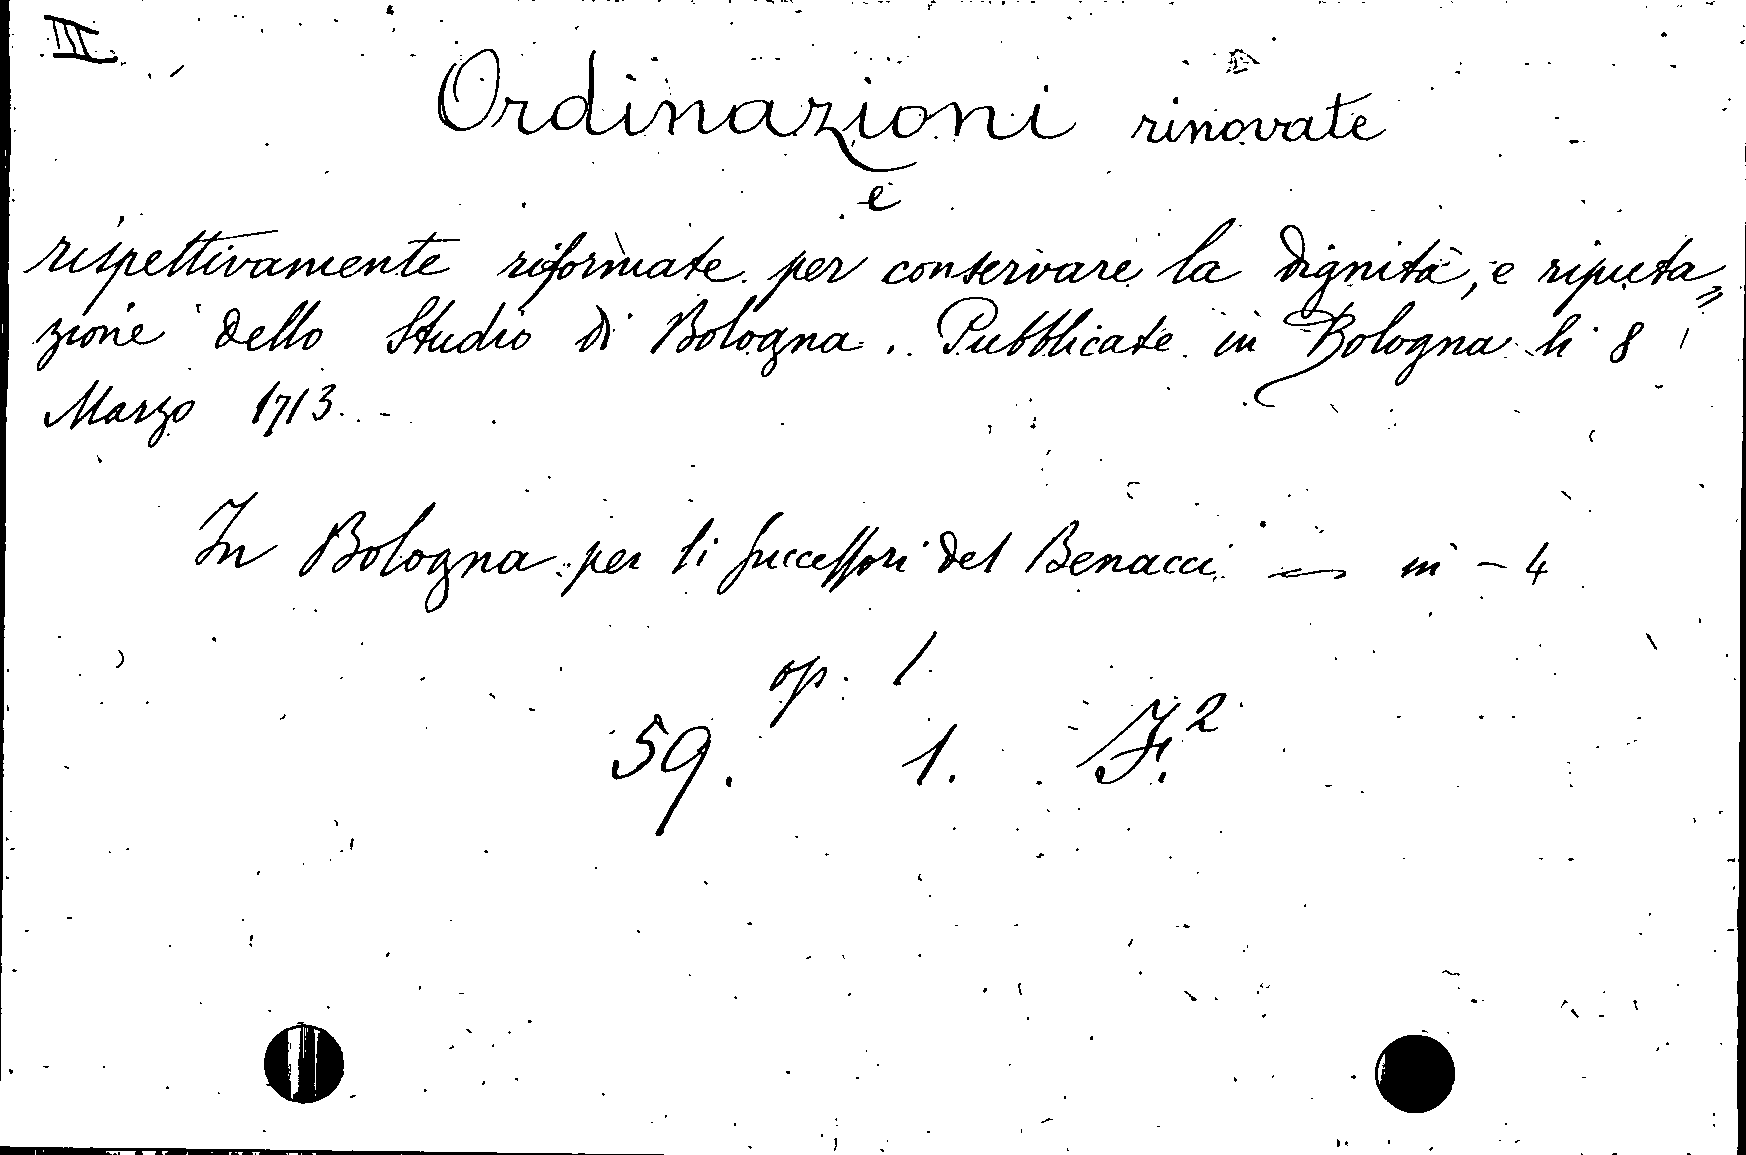 III
Ordinazioni rinovate
e
rispettivamente riformate per conservare la dignità, e riputa„
zione dello Studio di Bologna. Pubblicate in Bologna li 8
Marzo 1713.
In Bologna per li Successori del Benacci — in - 4
op. 1
59. 1. F.2